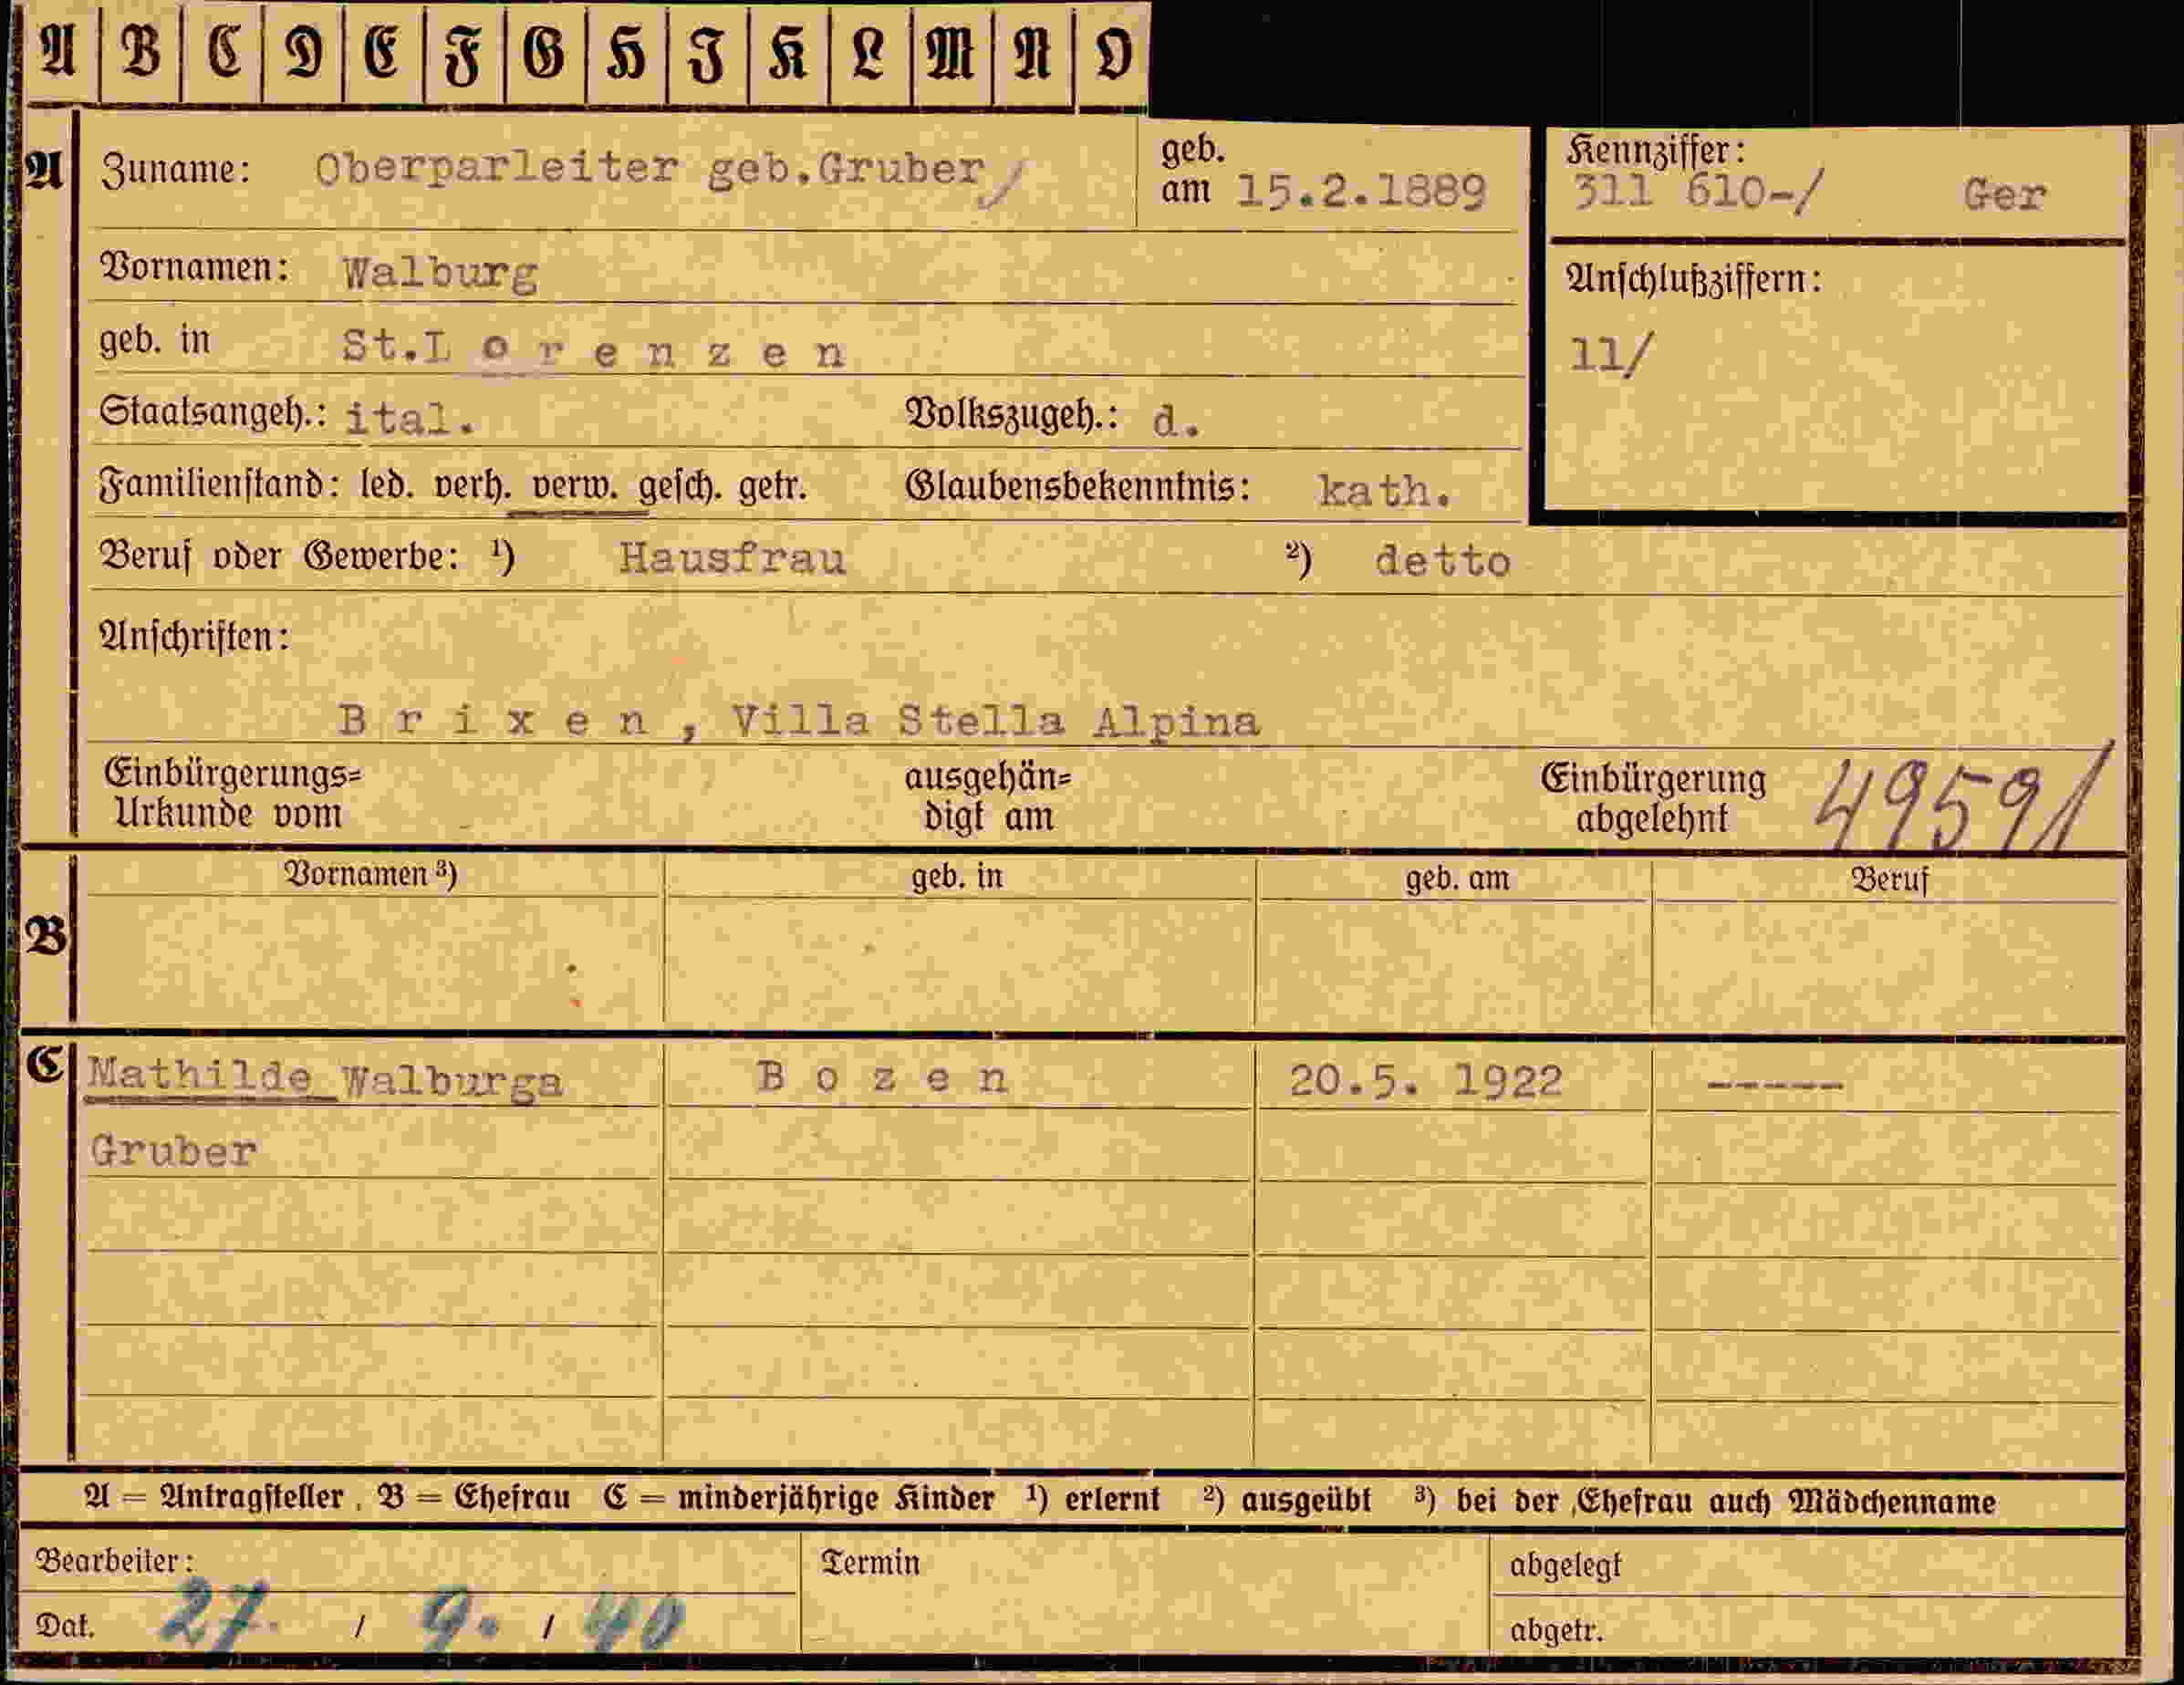 A B C D E F G H I K L M N O
A Zuname: Oberparleiter geb.Gruber
geb. am 15.2.1889
Kennziffer:
311 610-/ Ger
Vornamen: Walburg
Anschlußziffern:
11/
geb. in St.L o r e n z e n
Staatsangeh.: ital. Volkszugeh.: d.
Familienstand: led. verh. verw. gesch. getr. Glaubensbekenntnis: kath.
Beruf oder Gewerbe: ¹) Hausfrau ²) detto
Anschriften:
B r i x e n , Villa Stella Alpina
Einbürgerungs=
Urkunde vom
ausgehän=
digt am
Einbürgerung
abgelehnt
49591
Vornamen ³) geb. in geb. am Beruf
B
C Mathilde Walburga B o z e n 20.5. 1922 -----
Gruber
A = Antragsteller , B = Ehefrau C = minderjährige Kinder ¹) erlernt ²) ausgeübt ³) bei der Ehefrau auch Mädchenname
Bearbeiter: Termin abgelegt
Dat. 27. / 9. / 40 abgetr.